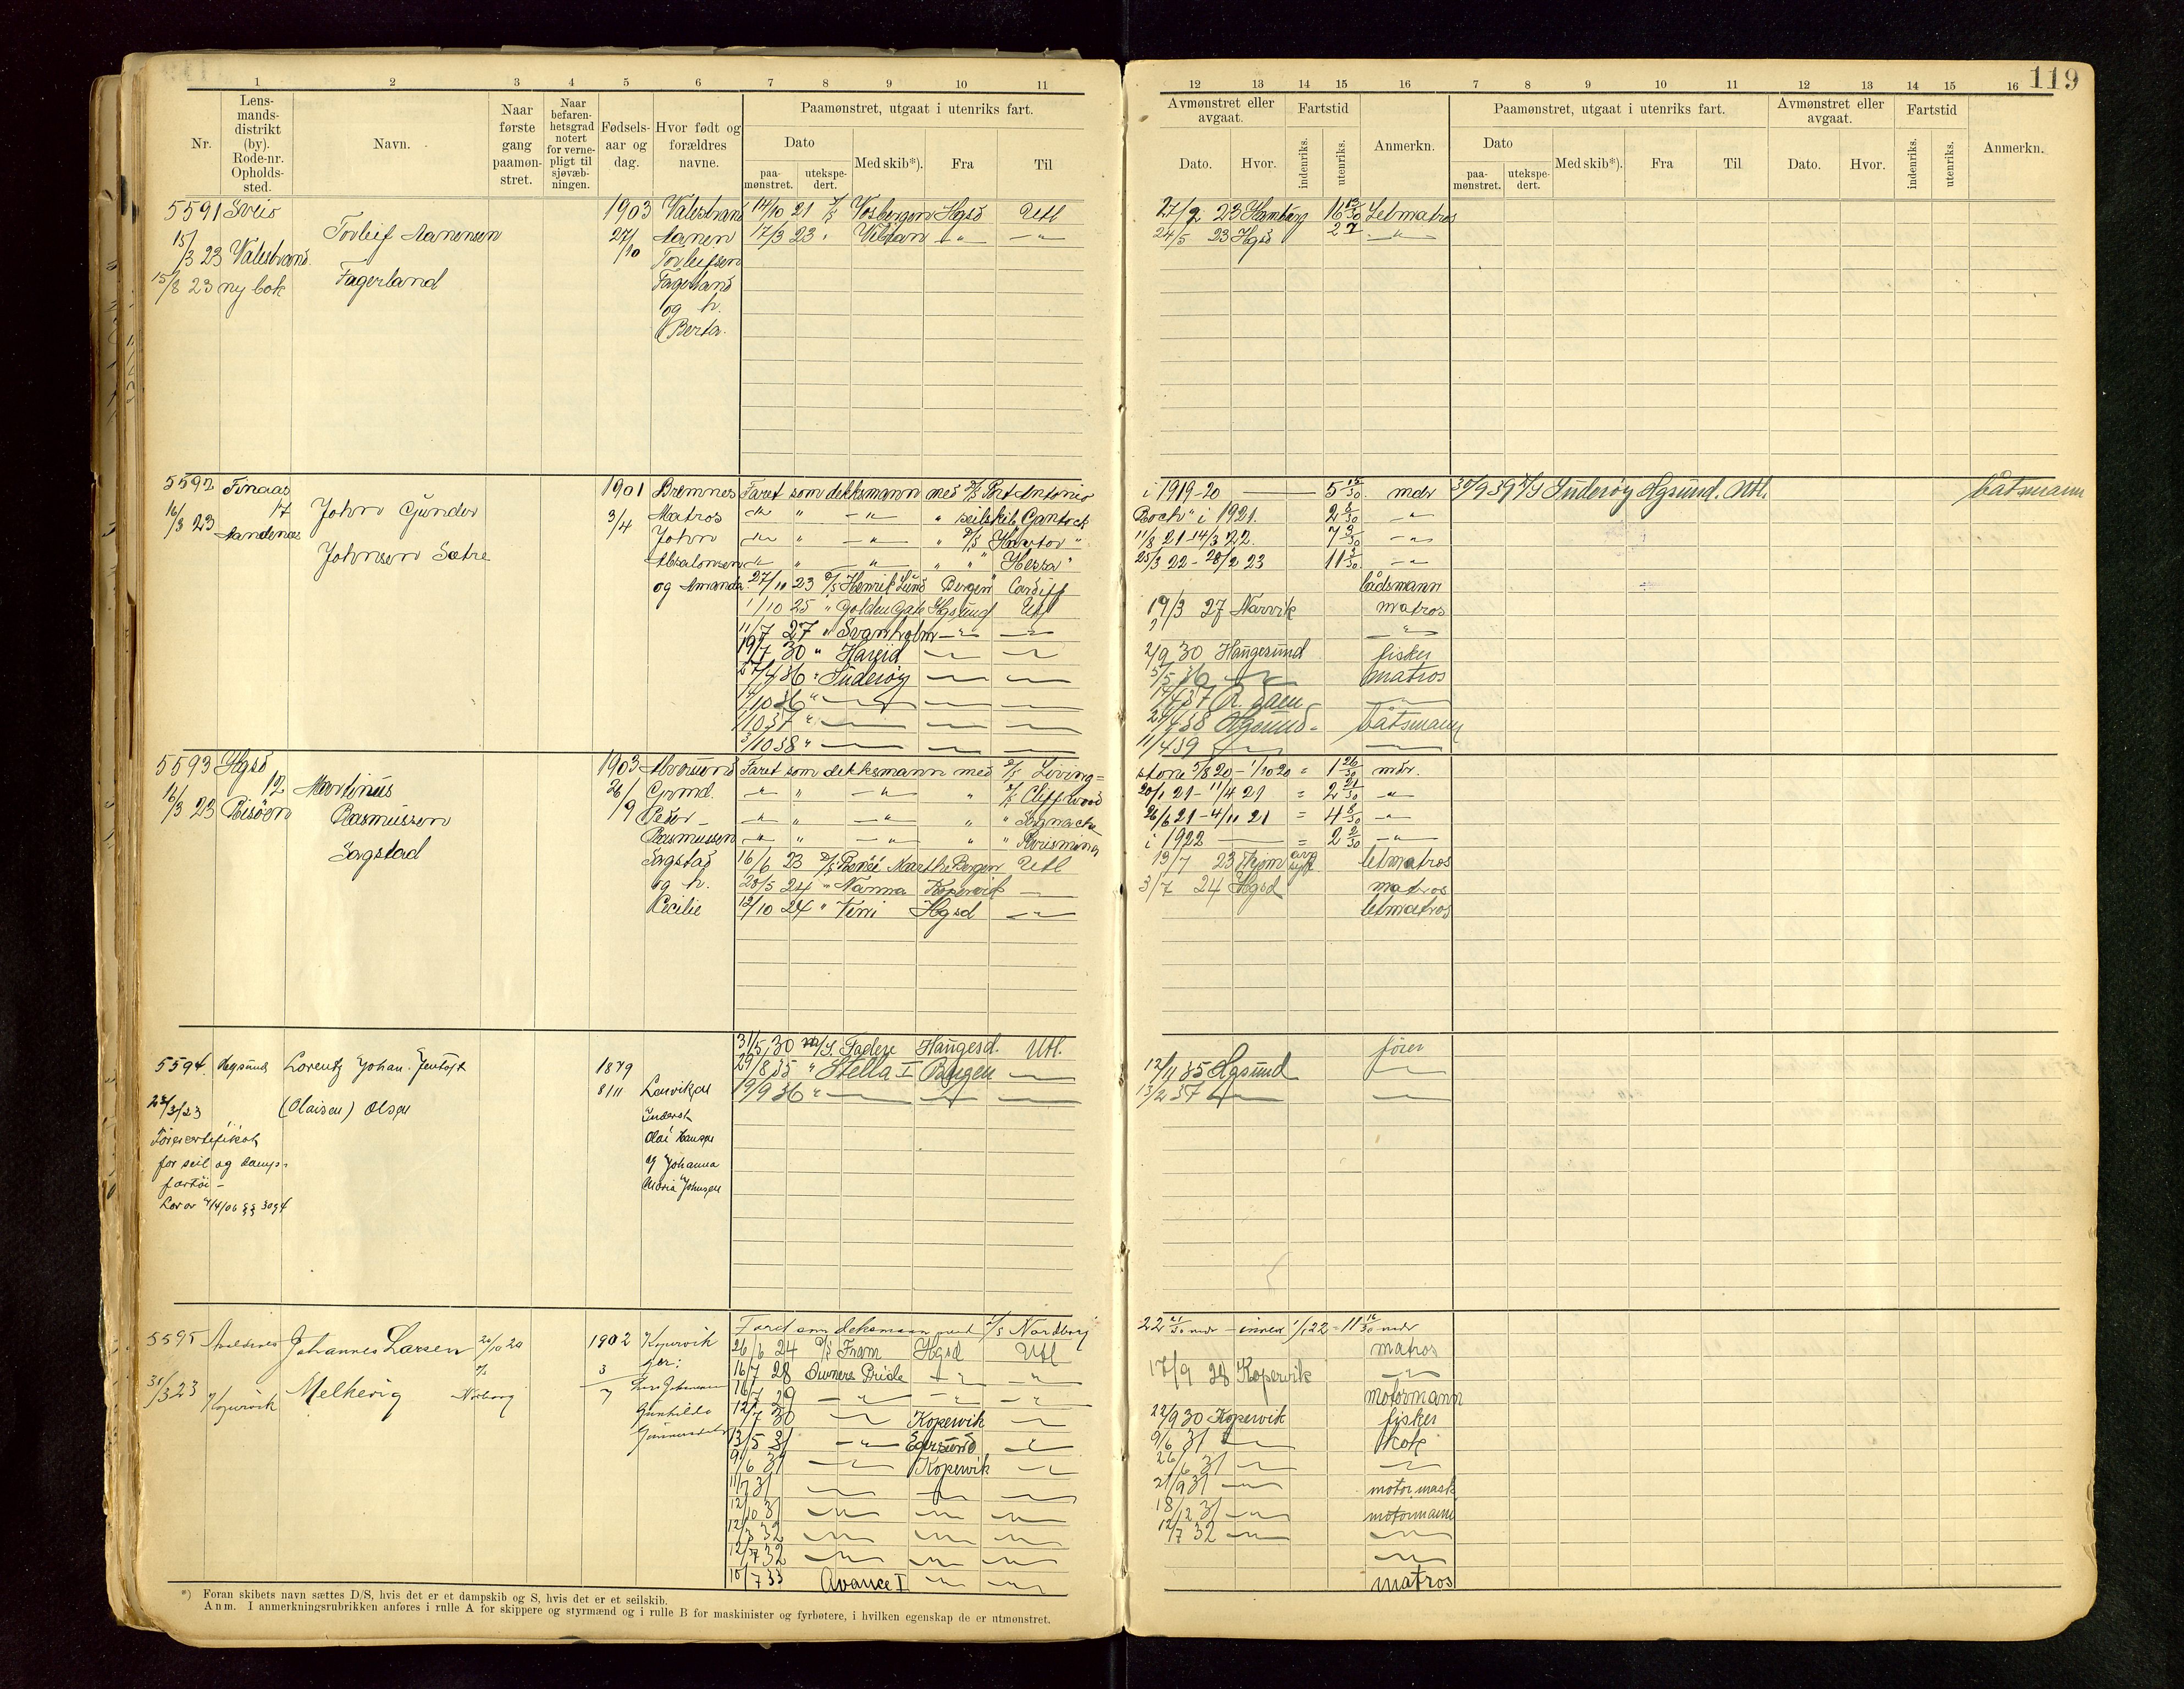 119
1 2 3 4 5 6 7 8 9 10 11
12 13 14 15 16 7 8 9 10 11 12 13 14 15 16
Nr.
Lens-
mands-
distrikt
(by).
Rode-nr.
Opholds-
sted.
Navn.
Naar
første
gang
paamøn-
stret.
Naar
befaren-
hetsgrad
notert
for verne-
pligt til
sjøvæb-
ningen.
Fødsels-
aar og
dag.
Hvor født og
forældres
navne.
Paamønstret, utgaat i utenriks fart.
Dato
paa-
mønstret.
utekspe-
dert.
Med skib*).
Fra
Til
Avmønstret eller
avgaat.
Dato.
Hvor.
Fartstid
indenriks.
utenriks.
Anmerkn.
Paamønstret, utgaat i utenriks fart.
Dato
paa-
mønstret.
utekspe-
dert.
Med skib*).
Fra
Til
Avmønstret eller
avgaat.
Dato.
Hvor.
Fartstid
indenriks.
utenriks.
Anmerkn.
5591 Sveio
15/3 23 Valestrand
15/8 23 ny bok
Torleif Aanensen
Fagerland
1903
27/10
Valestrand
Aanen
Torleifsen
Fagerland
og h.
Berta.
14/10 21 Vosbergen Hgsd Utl
17/3 23 " Vibran — " — — " —
27/2 23 Hamburg 16 13/30 Letmatros
24/5 23 Hgsd 2 7 — " —
5592 Finaas
17
16/3 23
John Gunder
Johnsen Sætre
1901
3/4
Bremnes
Matros
John
Absalonsen
og Amanda
Faret som dekksmann med D/S Port Antonio
" — " — " seilskib Gantock
" — " — " D/S
" — " — " " Hessa"
27/11 23 D/S Henrik Lund Bergen Cardiff
1/10 25 " Golden Gate Hgsund Utl
11/7 27 " Svanholm — " — — " —
19/7 30 " Hareid
27/4 36 " Suderøy
1/10 36 "
1/10 37 "
3/10 38 "
i 1919-20 — 5 15/30 mdr
Rock" i 1921. 2 — " —
11/8 21 - 14/3 22. 7 3/30 — " —
25/3 22 - 28/2 23 11 3/30 — " —
bådsmann
19/3 27 Narvik matros
— " —
2/9 30 Haugesund fisker
5/5 36 matros
14/4 37
29/4 38 Hgsund båtsmann
11/4 39
30/9 39 D/S Suderøy Hgsund. Utl. båtsmann
5593 Hgsd
12
16/3 23 Risøen
Martinus
Rasmussen
Sagstad
1903
26/9
Alversund
Peder
Rasmussen
Sagstad
og h.
Cecilie
Faret som dekksmann med D/S Living=
— " — " — " — " D/S Cliffwood
— " — " — " — " "
— " — " — " — " "
16/6 23 D/S Bergen Utl
28/5 24 " Nanna Kopervik —
12/10 24 " Hgsd — " —
stone 5/8 20 - 1/10 20 = 1 26/30 mdr.
20/1 21 - 11/4 21 = 2 21/30 — " —
26/6 21 - 4/11 21 = 4 8/30 — " —
i 1922 — = 2 2/30 — " —
19/7 23 Hjem syk letmatros
3/7 24 Hgsd matros
letmatros
5594. Hgsund
28/3/23
Førercertifikat
for seil og damp-
fartøi -
Lov av 4/4/06 §§ 3 og 4
Lorentz Johan Jentoft
(Olaisen) Olsen
1879
8/11
Inderst
Olai Hansen
og Johanna
Maria Johnsen
31/5 30 M/S. Haugesd. Utl.
29/8 35 " Stella I Bergen —
19/9 36 "
fører
12/11 35 Hgsund
13/2 37
5595
31/3 23 Kopervik
Johannes Larsen
Melkevig
20/10 20
Norborg
1902
3/7
Kopervik
Lars Johannesen
Gunhilda
Faret som deksmann med D/S Nordborg
26/6 24 D/S Fram Hgsd Utl
16/7 28 Owners Pride — " — — " —
16/7 29 — " — — " — — " —
12/7 30 — " — Kopervik — " —
13/5 31 — " — Egersund — " —
9/6 31 — " — Kopervik — " —
11/7 31
12/10 31
12/3 32
12/7 32
10/7 33 Avance I
22 21/30 mdr - innen 1/1 22 = 11 16/30 mdr
matros
17/9 28 Kopervik — " —
motormann
22/9 30 Kopervik fisker
9/6 31 kok
26/6 31
21/9 31 motormask
18/12 31 motormann
12/7 32
matros
*) Foran skibets navn sættes D/S, hvis det er et dampskib og S, hvis det er et seilskib.
Anm. I anmerkningsrubrikken anføres i rulle A for skippere og styrmænd og i rulle B for maskinister og fyrbøtere, i hvilken egenskap de er utmønstret.